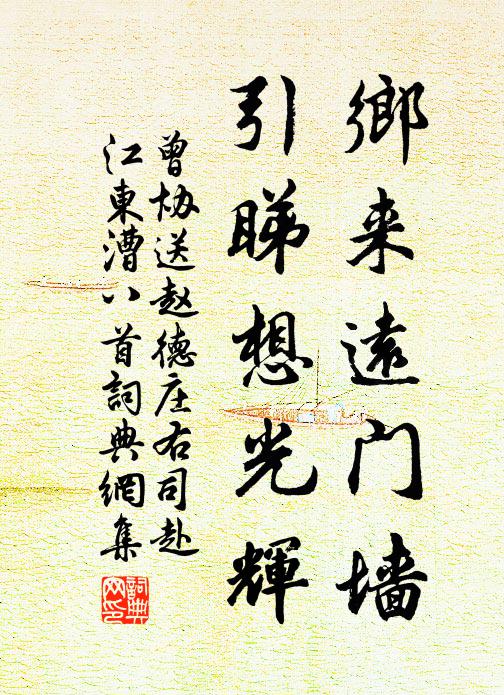 鄉来遠门墙
引睇想光輝
曾协送赵德庄右司赴
江東漕八首詞典網集
詞典網印